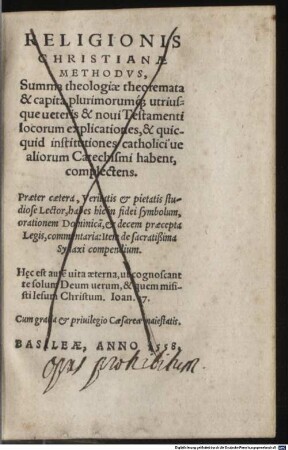 RELIGIONIS
CHRISTIANÆ
METHODVS,
Summa theologiæ theoremata
& capita plurimorumq́; utrius-
que ueteris & noui Testamenti
locorum explicationes, & quic-
quid institutiones catholici ue
aliorum Catechismi habent,
complectens.
Præter cætera, Veritatis & pietatis stu-
diose Lector, habes hic in fidei symbolum,
orationem Dominicã, & decem præcepta
Legis, commentaria: Item de sacratißima
Synaxi compendium.
Hęc est autē uita æterna, ut cognoscant
te solum Deum uerum, & quem misi-
sti Iesum Christum. Ioan. 17.
Cum gratia & priuilegio Cæsareæ maiestatis.
BASILEÆ, ANNO 1558.
opus prohibitum.